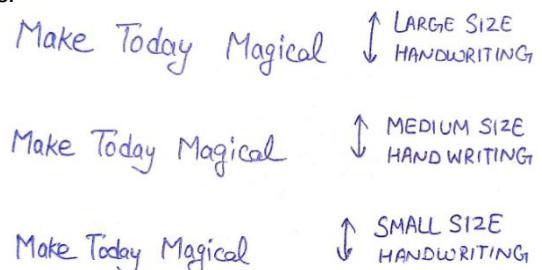 Make Today Magical
LARGE SIZE
HANDWRITING
Make Today Magical
MEDIUM SIZE
HANDWRITING
Make Today Magical
SMALL SIZE
HANDWRITING